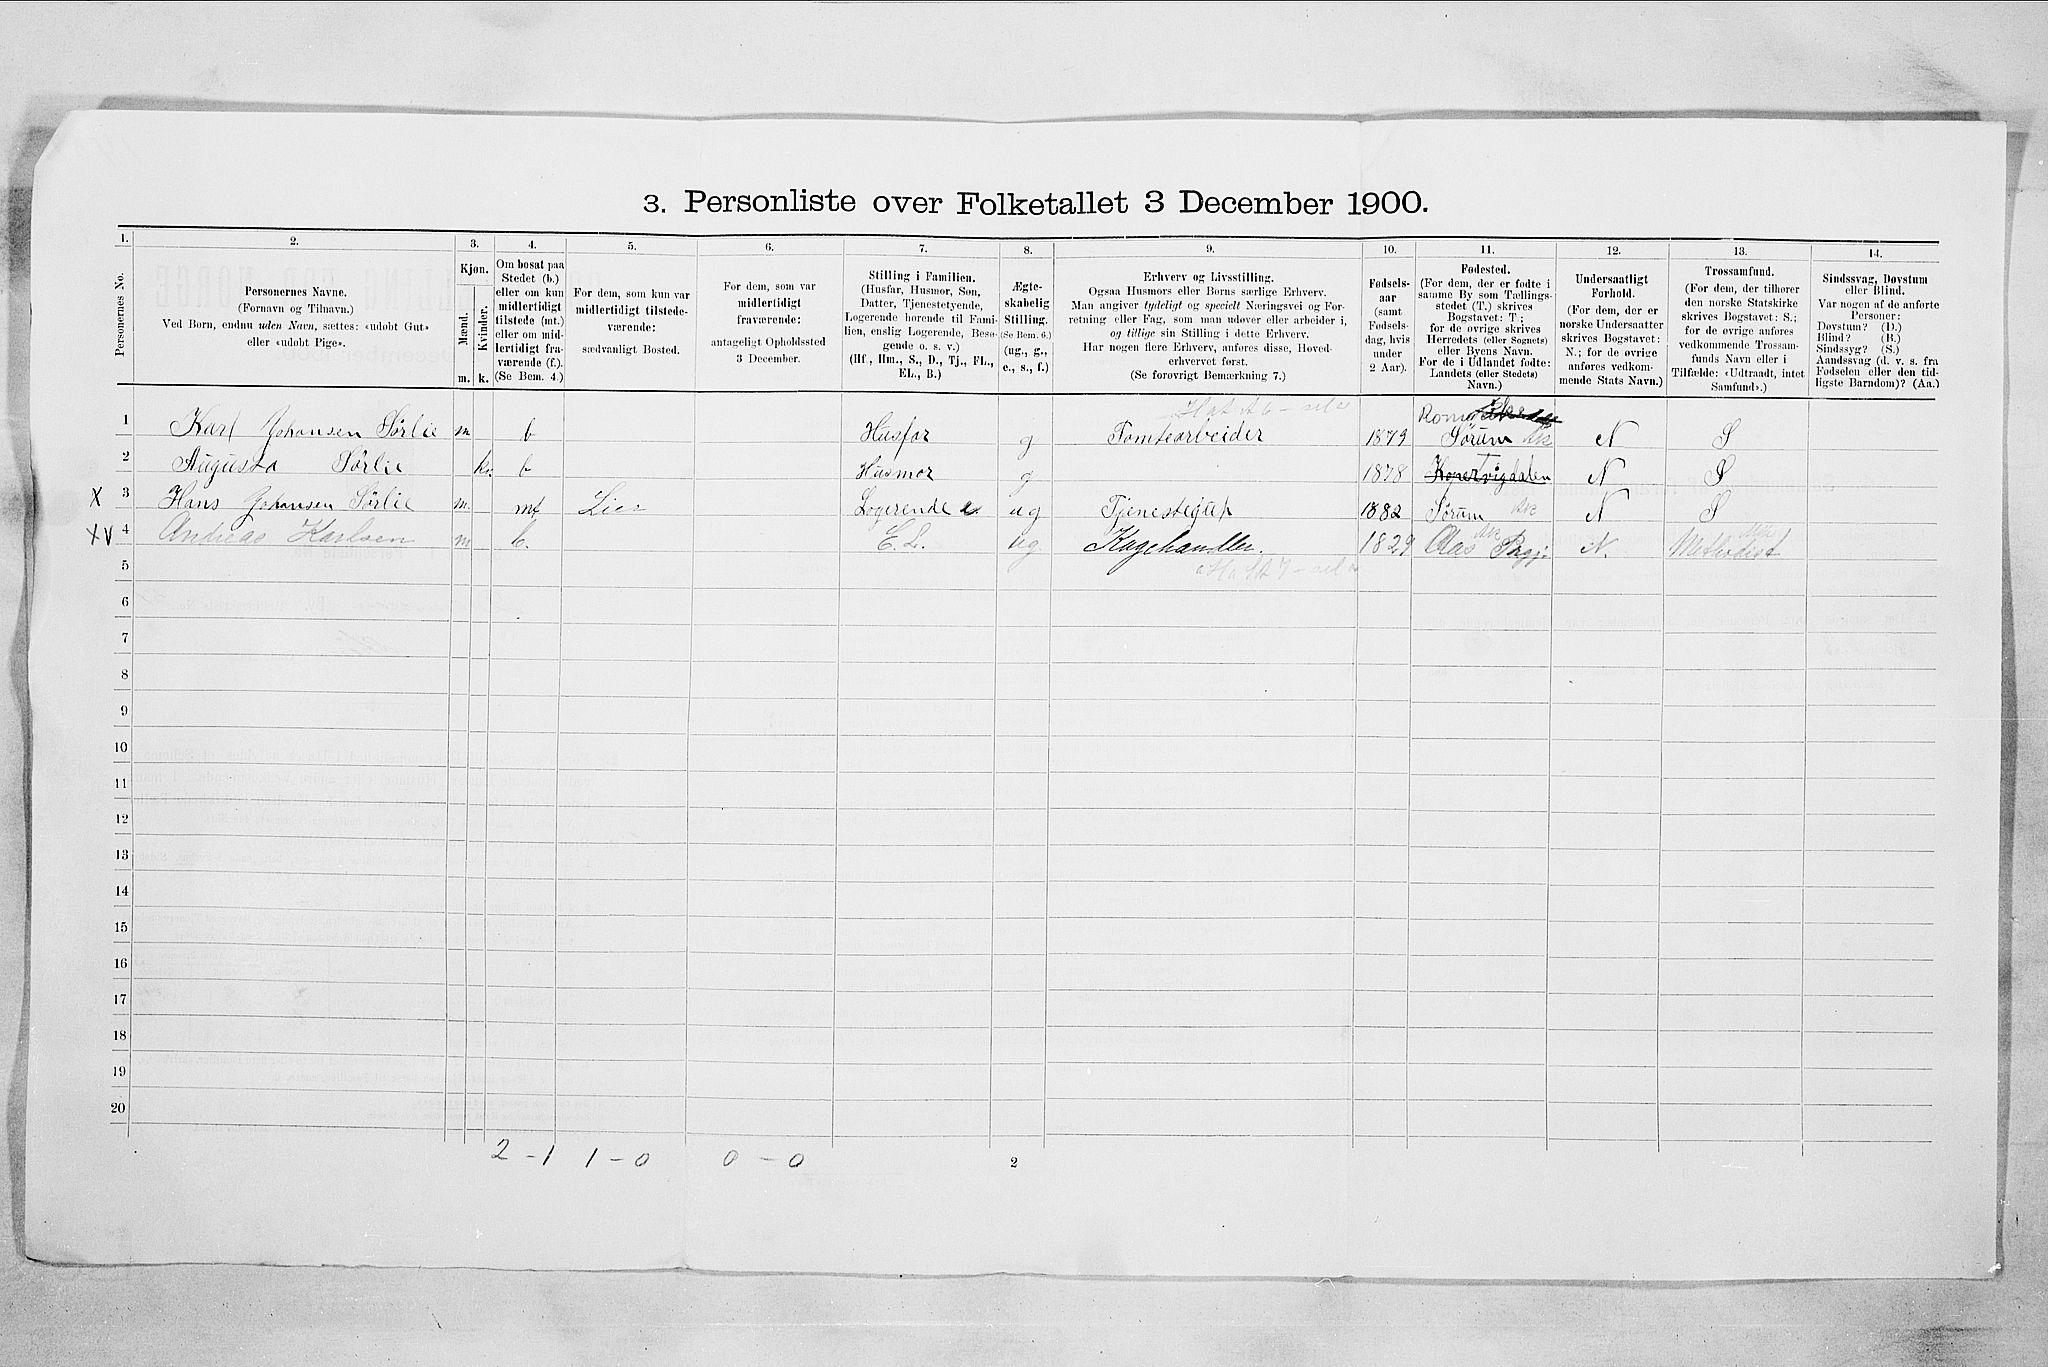 3. Personliste over Folketallet 3 December 1900.
1. 2. 3. 4. 5. 6. 7. 8. 9. 10. 11. 12. 13. 14.
Personernes No.
Personernes Navne.
(Fornavn og Tilnavn.)
Ved Børn, endnu uden Navn, sættes: «udøbt Gut»
eller «udøbt Pige».
Kjøn.
Mænd.
Kvinder.
m. k.
Om bosat paa
Stedet (b.)
eller om kun
midlertidigt
tilstede (mt.)
eller om mid-
lertidigt fra-
værende (f.).
(Se Bem. 4.)
For dem, som kun var
midlertidigt tilstede-
værende:
sædvanligt Bosted.
For dem, som var
midlertidigt
fraværende:
antageligt Opholdssted
3 December.
Stilling i Familien.
(Husfar, Husmor, Søn,
Datter, Tjenestetyende,
Logerende hørende til Fami-
lien, enslig Logerende, Besø-
gende o. s. v.)
(Hf., Hm., S., D., Tj., FL.,
EL., B.)
Ægte-
skabelig
Stilling.
(Se Bem. 6.)
(ug., g.,
e., s., f.)
Erhverv og Livsstilling.
Ogsaa Husmors eller Børns særlige Erhverv.
Man angiver tydeligt og specielt Næringsvei og For-
retning eller Fag, som man udøver eller arbeider i,
og tillige sin Stilling i dette Erhverv.
Har nogen flere Erhverv, anføres disse, Hoved-
erhvervet først.
(Se forøvrigt Bemærkning 7.)
Fødsels-
aar
(samt
Fødsels-
dag, hvis
under
2 Aar).
Fødested.
(For dem, der er fødte i
samme By som Tællings-
stedet (T.) skrives
Bogstavet: T;
for de øvrige skrives
Herredets (eller Sognets)
eller Byens Navn.
For de i Udlandet fødte:
Landets (eller Stedets)
Navn.)
Undersaatligt
Forhold.
(For dem, der er
norske Undersaatter
skrives Bogstavet:
N.; for de øvrige
anføres vedkom-
mende Stats Navn.)
Trossamfund.
(For dem, der tilhører
den norske Statskirke
skrives Bogstavet: S.;
for de øvrige anføres
vedkommende Trossam-
funds Navn eller i
Tilfælde: «Udtraadt, intet
Samfund».)
Sindssvag, Døvstum
eller Blind.
Var nogen af de anførte
Personer:
Døvstum? (D.)
Blind? (B.)
Sindssyg? (S.)
Aandssvag (d. v. s. fra
Fødselen eller den tid-
ligste Barndom)? (Aa.)
1 Karl Johansen Sørlie m b Husfar g Tomtearbeider 1879 Sørum N S
2 Augusta Sørlie k. b Husmor g 1878 N S
X 3 Hans Johansen Sørlie m. mt Lier Logerende ug Tjenestegut 1882 Sørum N S
XV 4 Andreas Karlsen m b. E. L. ug Kagehandler. 1829 N. Methodist
5
6
7
8
9
10
11
12
13
14
15
16
17
18
19
20
2 - 1 1 - 0 0 - 0
2